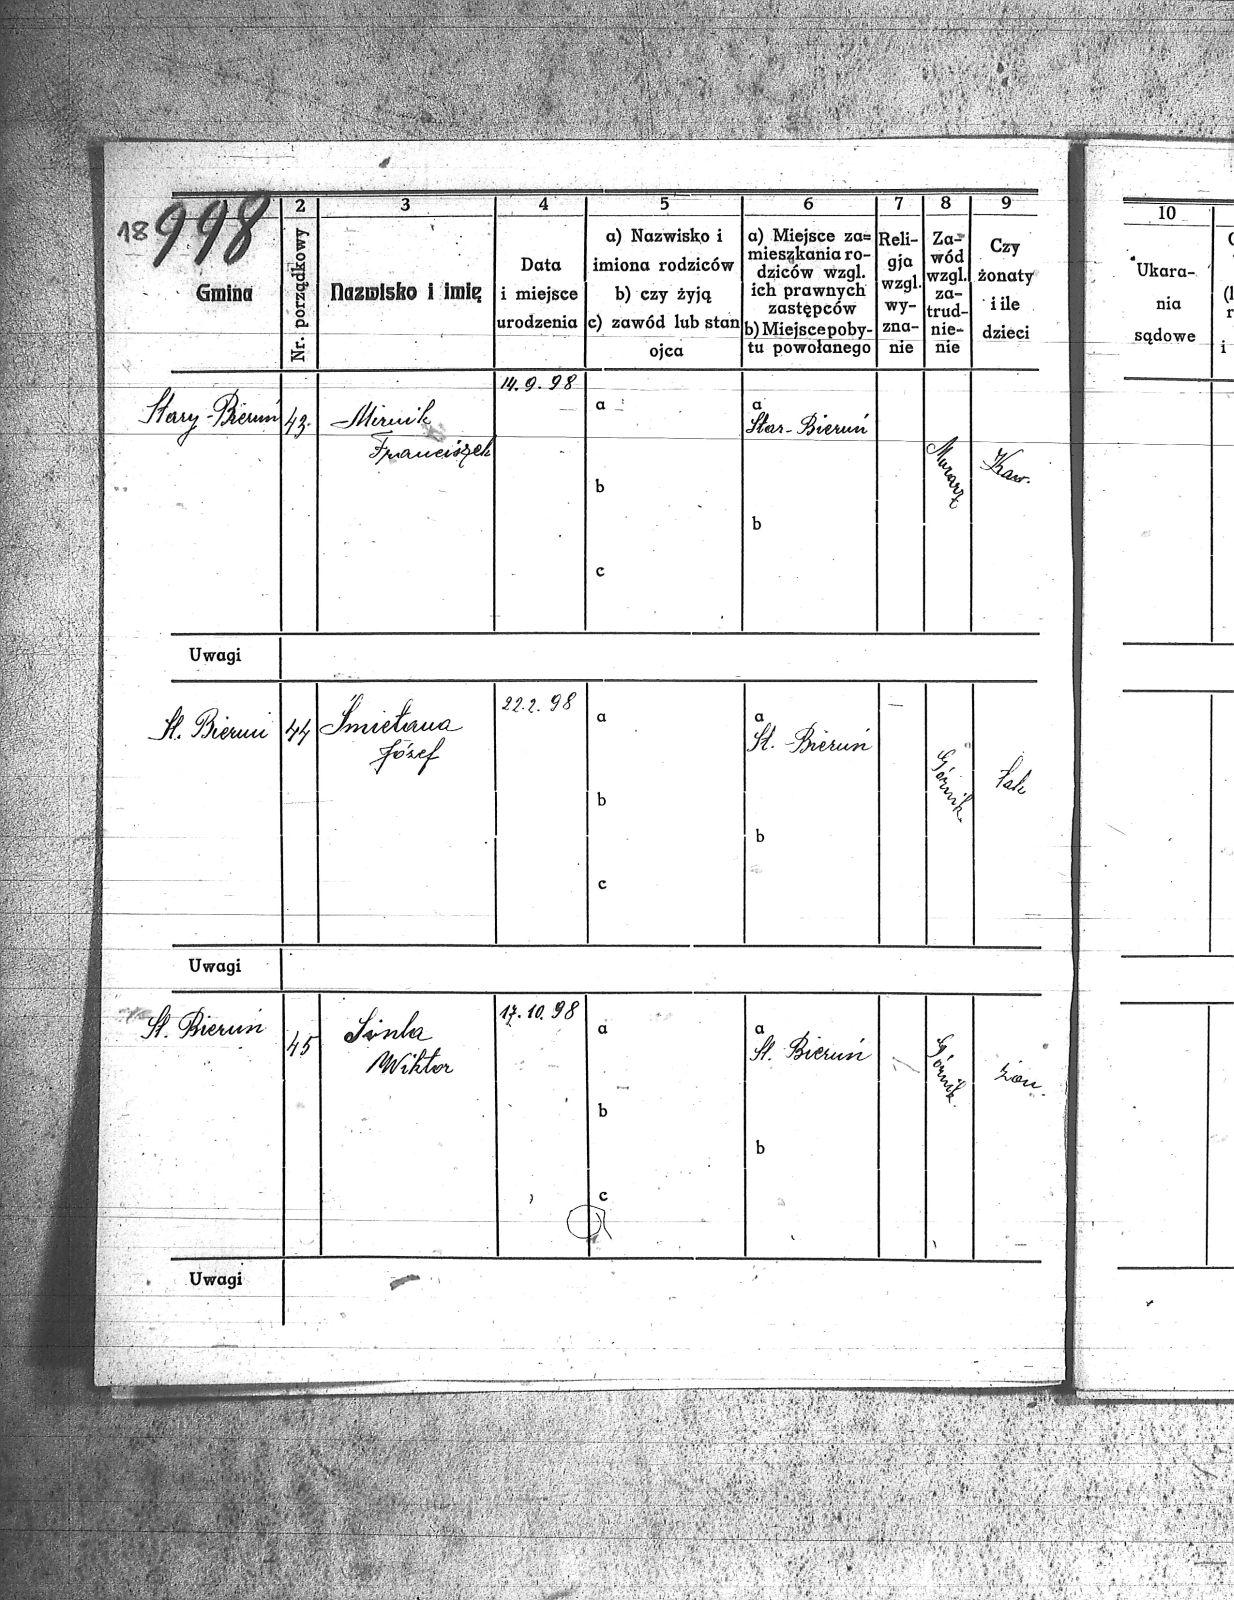 18 998
Gmina
2
Nr. porządkowy
3
Nazwisko i imię
4
Data
i miejsce
urodzenia
5
a) Nazwisko i
imiona rodziców
b) czy żyją
c) zawód lub stan
ojca
6
a) Miejsce za=
mieszkania ro-
dziców wzgl.
ich prawnych
zastępców
b) Miejsce poby-
tu powołanego
7
Reli-
gja
wzgl.
wy-
zna-
nie
8
Za-
wód
wzgl.
za-
trud-
nie-
nie
9
Czy
żonaty
i ile
dzieci
10
Ukara-
nia
sądowe
Stary-Bieruń
43.
Mirnik
Franciszek
14.9.98
a
b
c
a
Star-Bieruń
b
Murarz
Kaw.
Uwagi
St. Bieruń
44
Śmietana
Józef
22.2.98
a
b
c
a
St. Bieruń
b
Górnik.
Uwagi
St. Bieruń
45
Wiktor
17.10.98
a
b
c
a
St. Bieruń
b
Górnik.
żon.
Uwagi